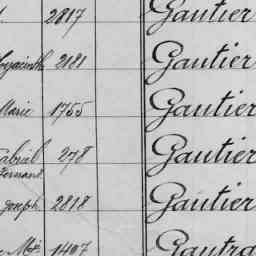 2817 Gautier
Hyacinth 2181 Gautier
Marie 1755 Gautier
Gabriel 278 Gautier
Fernand
Joseph 2818 Gautier
1407